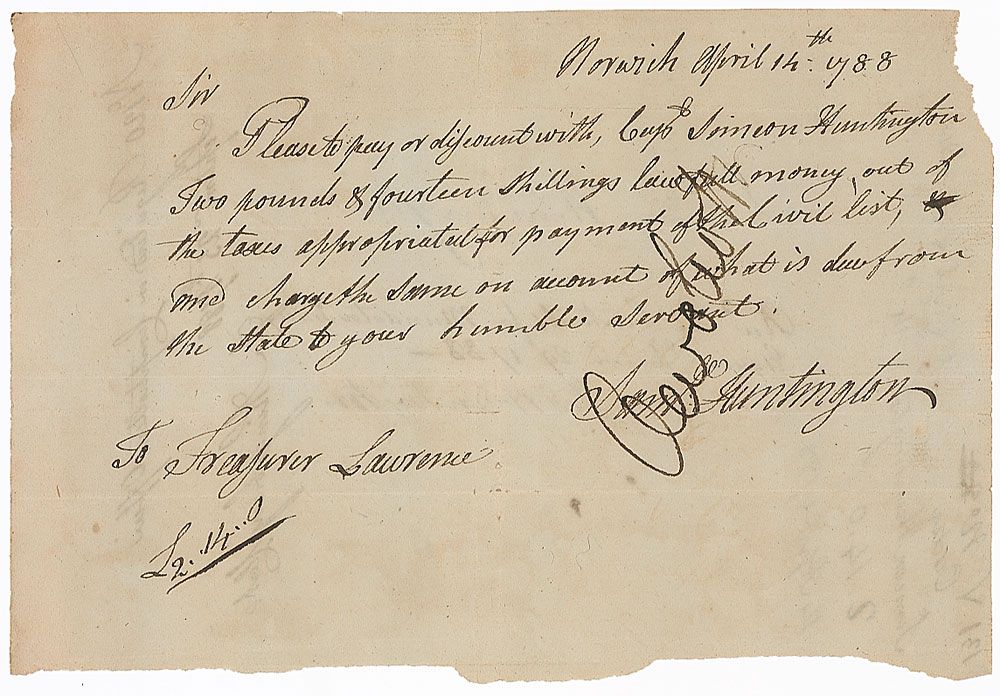 Norwich April 14th. 1788
Sir
Please to pay or discount with, Capt Simeon Huntington
Two pounds & fourteen Shillings lawfull money out of
the taxes appropriated for payment of the Civil list,
and charge the Same on account of what is due from
the State to your humble Servant.
Saml. Huntington
To Treasurer Lawrence
£2..14..0